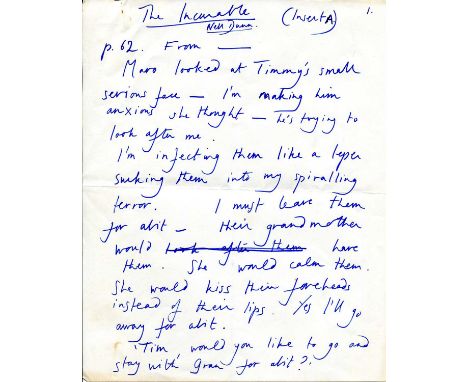 The Incurable (Insert A) 1.
Nell Dunn.
p. 62. From —
Maro looked at Timmy's small
serious face — I'm making him
anxious she thought — he's trying to
look after me.
I'm infecting them like a leper
sucking them into my spiralling
terror. I must leave them
for abit — their grandmother
would look after them have
them. She would calm them.
She would kiss their foreheads
instead of their lips. Yes I'll go
away for abit.
'Tim would you like to go and
stay with Gran for abit?'